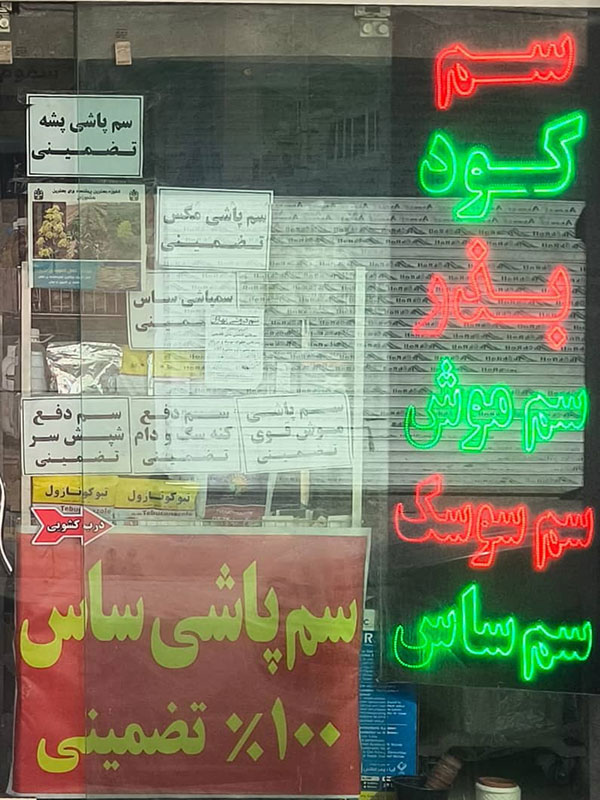 سم
کود
بذر
سم موش
سم سوسک
سم ساس
سم پاشی پشه
تضمینی
سم پاشی مگس
تضمینی
سمپاشی ساس
تضمینی
سم دفع
شپش سر
تضمینی
سم دفع
کنه سگ و دام
تضمینی
سم پاشی
موش قوی
تضمینی
تبوکونازول
تبوکونازول
درب کشویی
سم پاشی ساس
۱۰۰٪ تضمینی